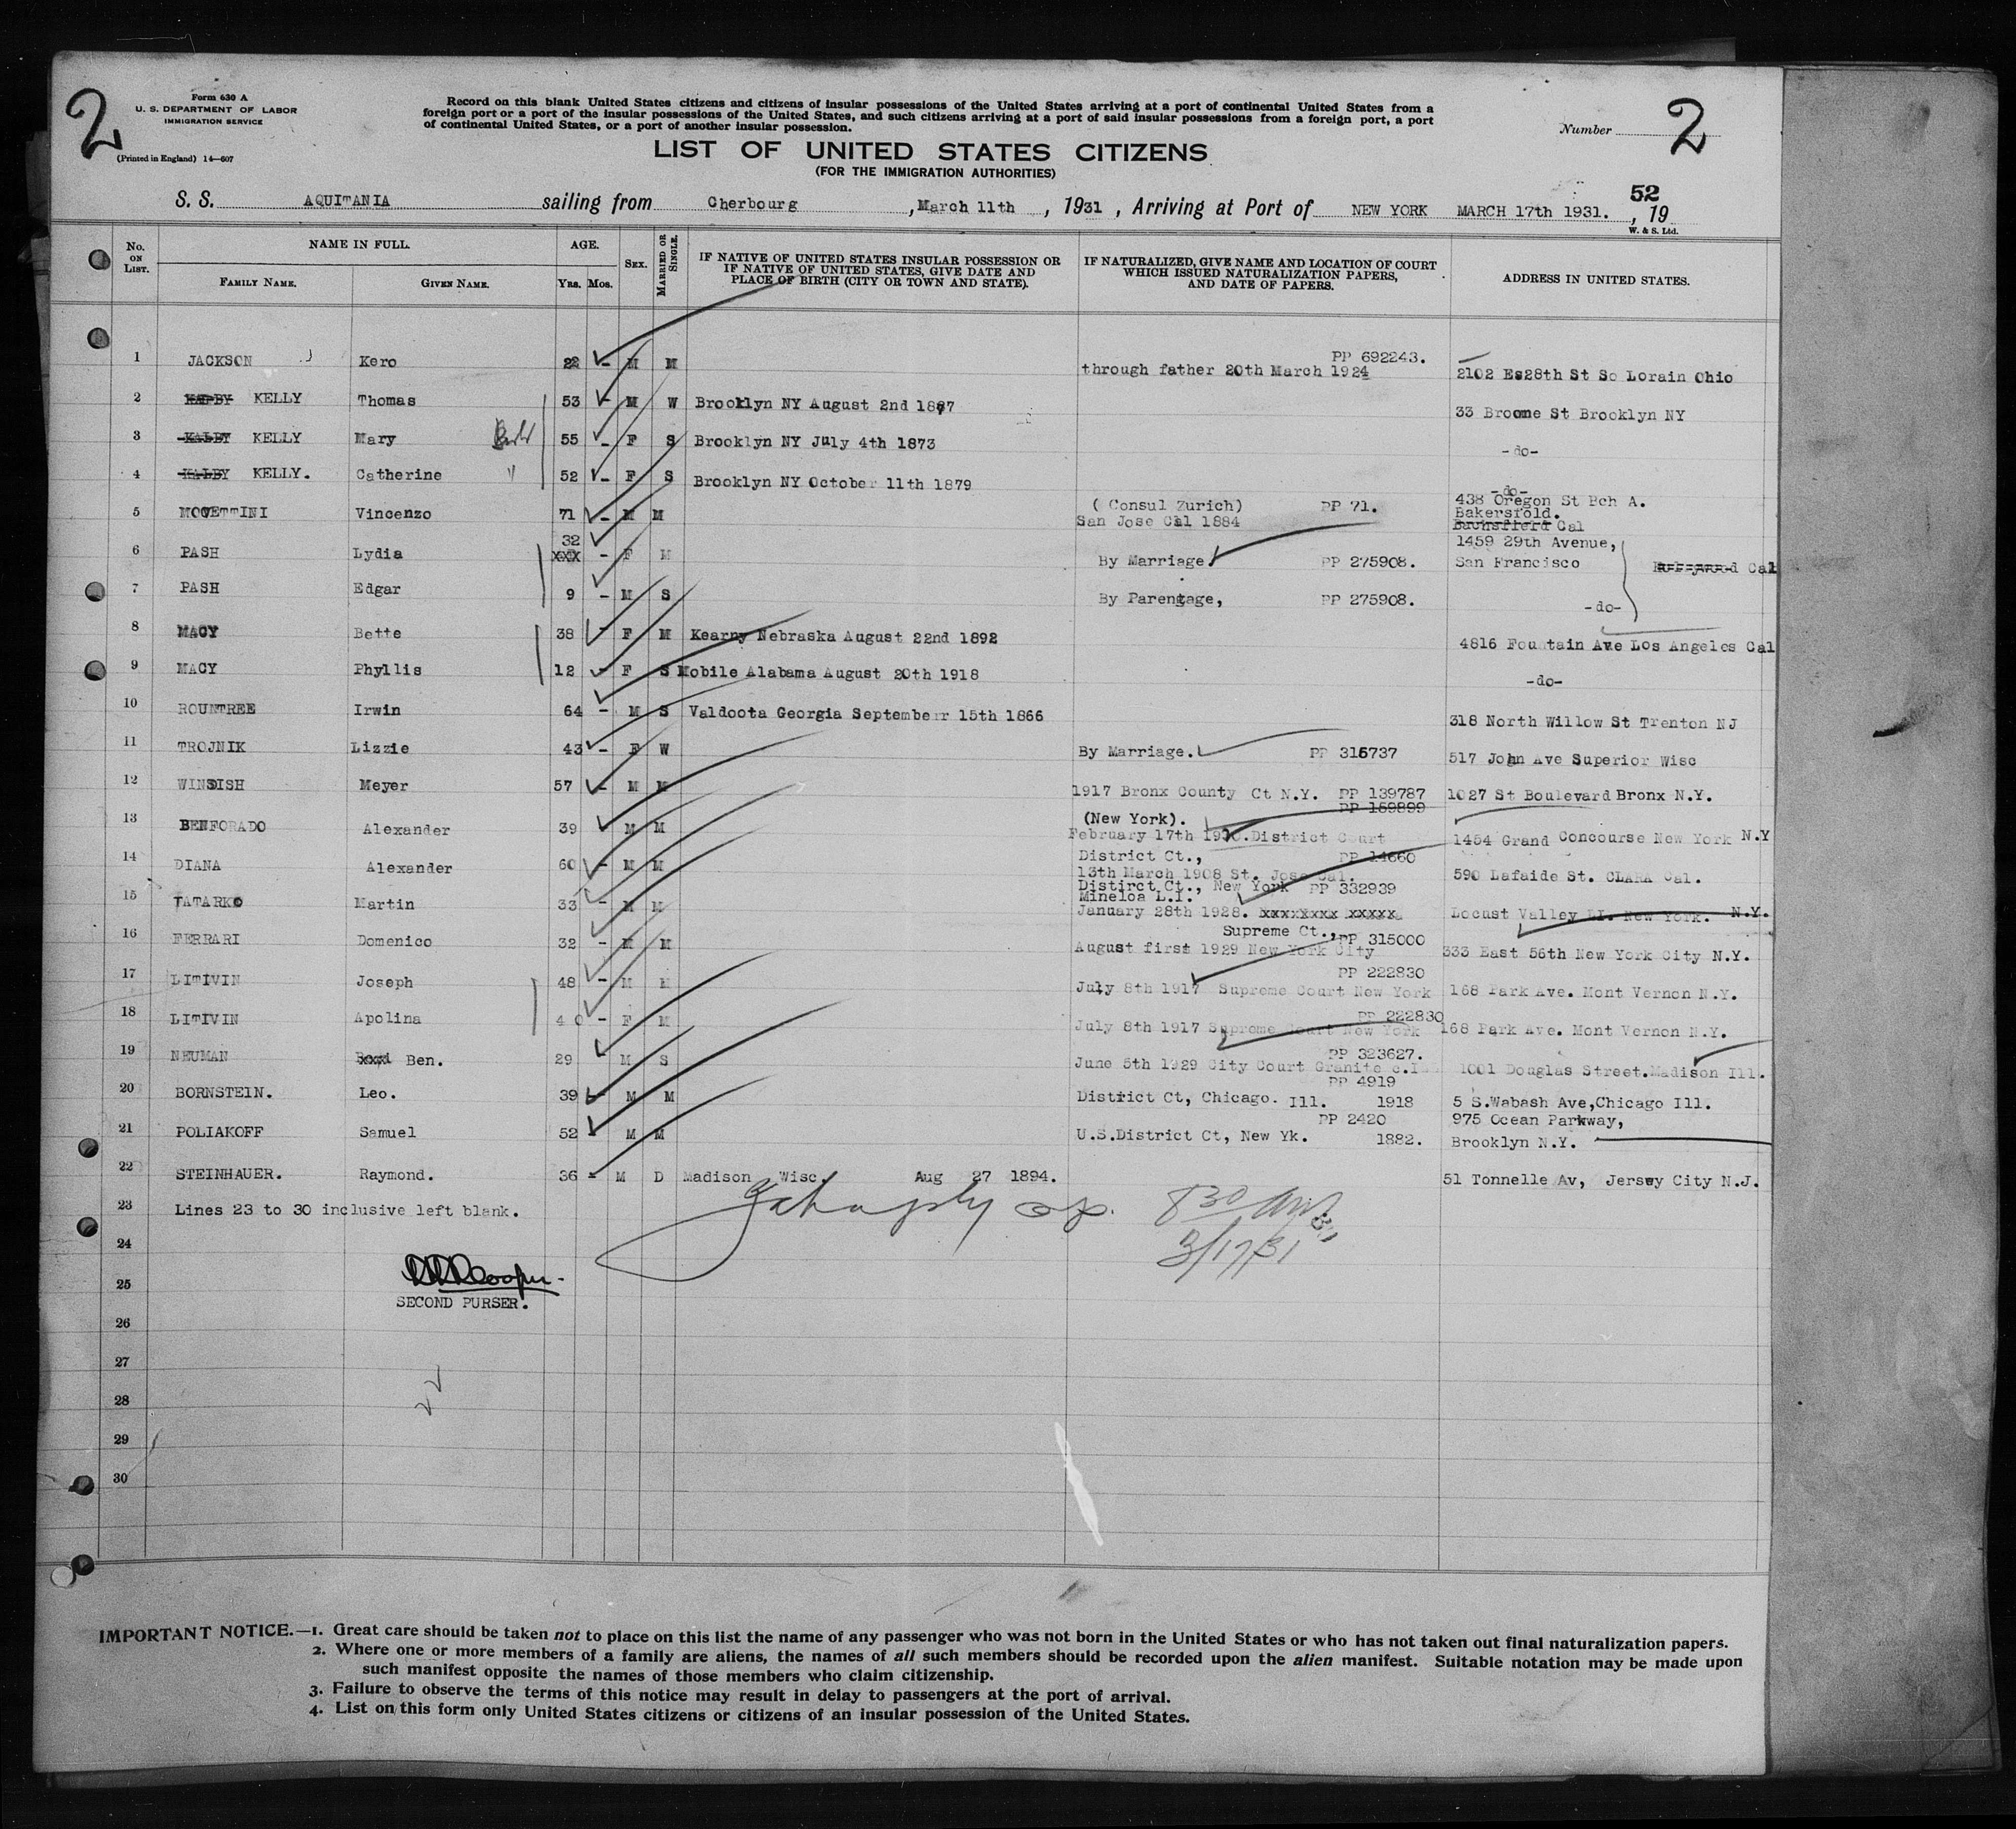 2
Form 630 A
U. S. DEPARTMENT OF LABOR
IMMIGRATION SERVICE
(Printed in England) 14—607
Record on this blank United States citizens and citizens of insular possessions of the United States arriving at a port of continental United States from a
foreign port or a port of the insular possessions of the United States, and such citizens arriving at a port of said insular possessions from a foreign port, a port
of continental United States, or a port of another insular possession.
Number 2
LIST OF UNITED STATES CITIZENS
(FOR THE IMMIGRATION AUTHORITIES)
52
S. S. AQUITANIA sailing from Cherbourg , March 11th , 1931 , Arriving at Port of NEW YORK MARCH 17th 1931. , 19
W. & S. Ltd.
No. ON LIST. NAME IN FULL. FAMILY NAME. GIVEN NAME. AGE. YRS. MOS. SEX. MARRIED OR SINGLE. IF NATIVE OF UNITED STATES INSULAR POSSESSION OR IF NATIVE OF UNITED STATES, GIVE DATE AND PLACE OF BIRTH (CITY OR TOWN AND STATE). IF NATURALIZED, GIVE NAME AND LOCATION OF COURT WHICH ISSUED NATURALIZATION PAPERS, AND DATE OF PAPERS. ADDRESS IN UNITED STATES.
1 JACKSON Kero 22 - M M PP 692243. through father 20th March 1924 2102 Es28th St So Lorain Ohio
2 KELLY Thomas 53 - M W Brooklyn NY August 2nd 1877 33 Broome St Brooklyn NY
3 KALBY KELLY Mary 55 - F S Brooklyn NY July 4th 1873 -do-
4 KALBY KELLY. Catherine 52 - F S Brooklyn NY October 11th 1879 -do-
5 MOVETTINI Vincenzo 71 - M M ( Consul Zurich) PP 71. San Jose Cal 1884 438 Oregon St Bch A. Bakersfold. Cal
6 PASH Lydia 32 xxx - F M By Marriage PP 275908. 1459 29th Avenue, San Francisco Cal
7 PASH Edgar 9 - M S By Parentage, PP 275908. -do-
8 MACY Bette 38 - F M Kearny Nebraska August 22nd 1892 4816 Fountain Ave Los Angeles Cal
9 MACY Phyllis 12 - F S Mobile Alabama August 20th 1918 -do-
10 ROUNTREE Irwin 64 - M S Valdoota Georgia Septemberr 15th 1866 318 North Willow St Trenton NJ
11 TROJNIK Lizzie 43 - F W By Marriage. PP 316737 517 John Ave Superior Wisc
12 WINDISH Meyer 57 - M M 1917 Bronx County Ct N.Y. PP 139787 1027 St Boulevard Bronx N.Y.
13 BENFORADO Alexander 39 - M M PP 159899 (New York). February 17th District Court 1454 Grand Concourse New York N.Y
14 DIANA Alexander 60 - M M District Ct., PP 14660 13th March 1908 St. Jose Cal. 590 Lafaide St. CLARA Cal.
15 TATARKO Martin 33 - M M Distirct Ct., New York PP 332939 Mineloa L.I. January 28th 1928. xxxxxxxx xxxxx Locust Valley LI. New York. N.Y.
16 FERRARI Domenico 32 - M M Supreme Ct., PP 315000 August first 1929 New York City 333 East 56th New York City N.Y.
17 LITIVIN Joseph 48 - M M PP 222830 July 8th 1917 Supreme Court New York 168 Park Ave. Mont Vernon N.Y.
18 LITIVIN Apolina 40 - F M PP 222830 July 8th 1917 Supreme Court New York 168 Park Ave. Mont Vernon N.Y.
19 NEUMAN Ben. 29 - M S PP 323627. June 5th 1929 City Court Granite c.I 1001 Douglas Street.Madison Ill.
20 BORNSTEIN. Leo. 39 - M M PP 4919 District Ct, Chicago. Ill. 1918 5 S.Wabash Ave,Chicago Ill.
21 POLIAKOFF Samuel 52 - M M PP 2420 U.S.District Ct, New Yk. 1882. 975 Ocean Parkway, Brooklyn N.Y.
22 STEINHAUER. Raymond. 36 - M D Madison Wisc. Aug 27 1894. 51 Tonnelle Av, Jersey City N.J.
23 Lines 23 to 30 inclusive left blank.
830 AM
3/17/31
24
25
SECOND PURSER.
26
27
28
29
30
IMPORTANT NOTICE.—1. Great care should be taken not to place on this list the name of any passenger who was not born in the United States or who has not taken out final naturalization papers.
2. Where one or more members of a family are aliens, the names of all such members should be recorded upon the alien manifest. Suitable notation may be made upon
such manifest opposite the names of those members who claim citizenship.
3. Failure to observe the terms of this notice may result in delay to passengers at the port of arrival.
4. List on this form only United States citizens or citizens of an insular possession of the United States.